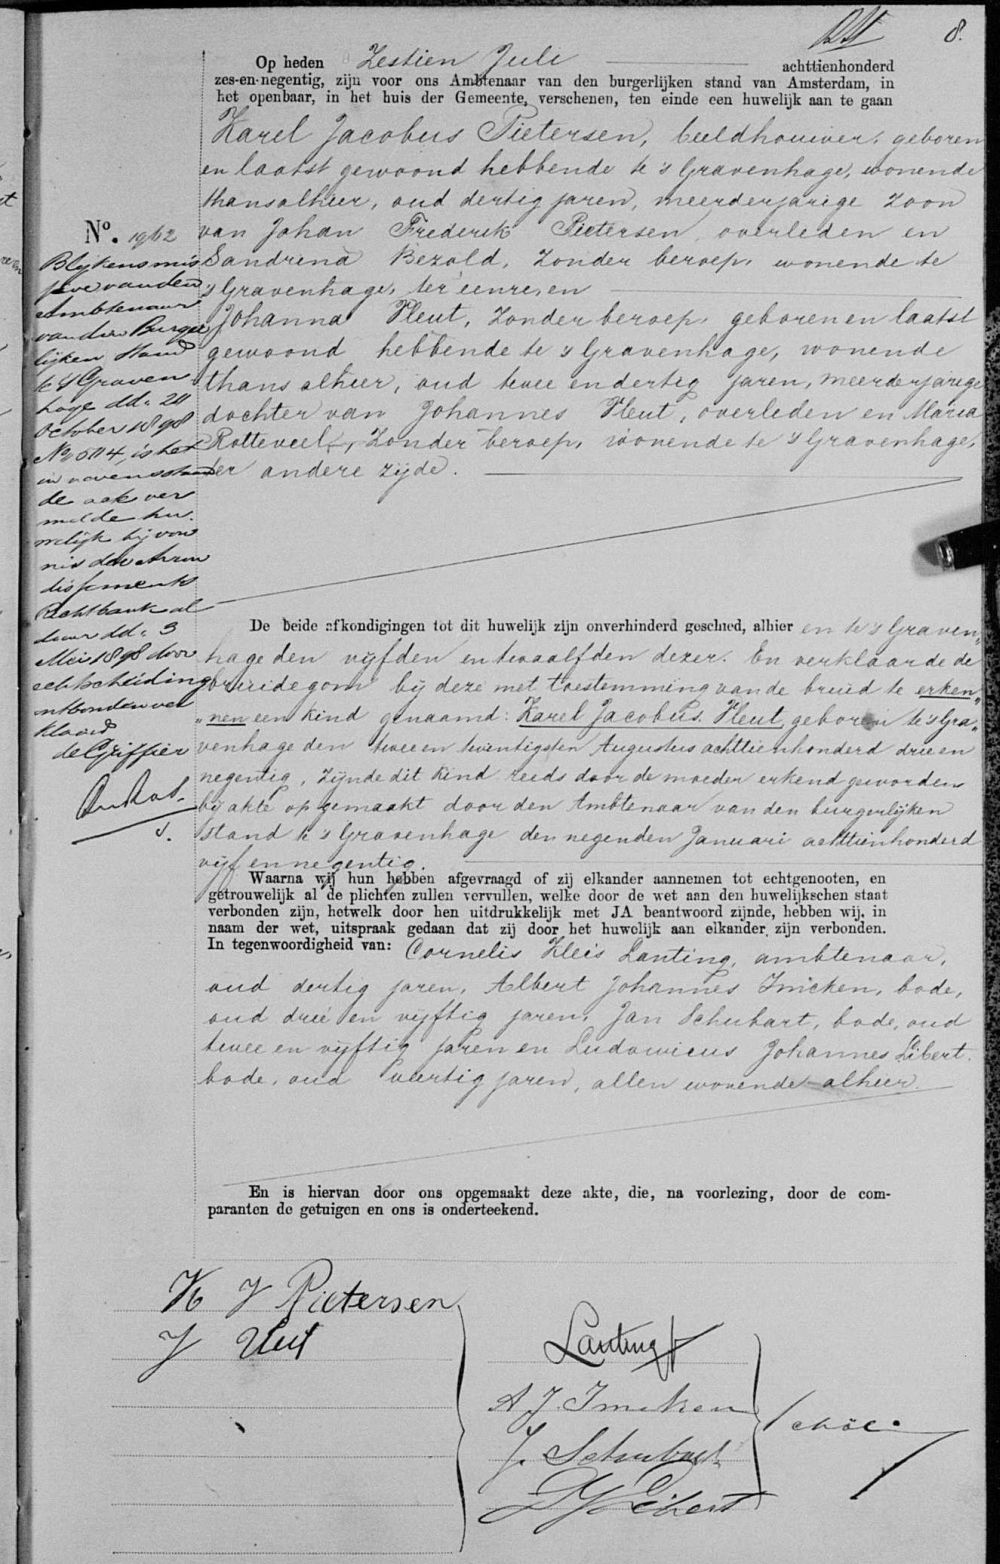 8.
Op heden Zestien Juli achttienhonderd
zes-en-negentig, zijn voor ons Ambtenaar van den burgerlijken stand van Amsterdam, in
het openbaar, in het huis der Gemeente, verschenen, ten einde een huwelijk aan te gaan
Karel Jacobus Pietersen, beeldhouwer, geboren
en laatst gewoond hebbende te 's Gravenhage, wonende
thans alhier, oud dertig jaren, meerderjarige zoon
van Johan Frederik Pietersen, overleden en
Sandrina Bezold, zonder beroep, wonende te
's Gravenhage, ter eenre, en
Johanna Vleut, zonder beroep, geboren en laatst
gewoond hebbende te 's Gravenhage, wonende
thans alhier, oud twee en dertig jaren, meerderjarige
dochter van Johannes Vleut, overleden en Maria
Rotteveel, zonder beroep, wonende te 's Gravenhage,
ter andere zijde.
No. 1962
Blijkens mis
sive van den
Ambtenaar
van den Burger
lijken Stand
te 's Graven
hage dd. 20
October 1898
No 504, is het
in nevenstaan
de akte ver
melde hu
welijk bij von
nis der Arron
dissements
Rechtbank al
daar dd. 3
Mei 1898 door
echtscheiding
ontbonden ver
klaard
de Griffier
De beide afkondigingen tot dit huwelijk zijn onverhinderd geschied, alhier en te 's Graven„
hage den vijfden en twaalfden dezer. En verklaarde de
bruidegom bij deze met toestemming van de bruid te erken„
„nen een kind genaamd: Karel Jacobus Vleut, geboren te 's Gra„
venhage den twee en twintigsten Augustus achttienhonderd drie en
negentig, zijnde dit kind reeds door de moeder erkend geworden
bij akte opgemaakt door den Ambtenaar van den burgerlijken
stand te 's Gravenhage den negenden Januari achttienhonderd
vijf en negentig.
Waarna wij hun hebben afgevraagd of zij elkander aannemen tot echtgenooten, en
getrouwelijk al de plichten zullen vervullen, welke door de wet aan den huwelijkschen staat
verbonden zijn, hetwelk door hen uitdrukkelijk met JA beantwoord zijnde, hebben wij, in
naam der wet, uitspraak gedaan dat zij door het huwelijk aan elkander zijn verbonden.
In tegenwoordigheid van: Cornelis Kleis Lanting, ambtenaar,
oud dertig jaren, Albert Johannes Imeken, bode,
oud drie en vijftig jaren, Jan Schubart, bode, oud
twee en vijftig jaren en Ludovicus Johannes Libert,
bode, oud veertig jaren, allen wonende alhier.
En is hiervan door ons opgemaakt deze akte, die, na voorlezing, door de com-
paranten de getuigen en ons is onderteekend.
K J Pietersen
J Vleut
Lanting
A. J. Imeken
J. Schubart
L J Libert